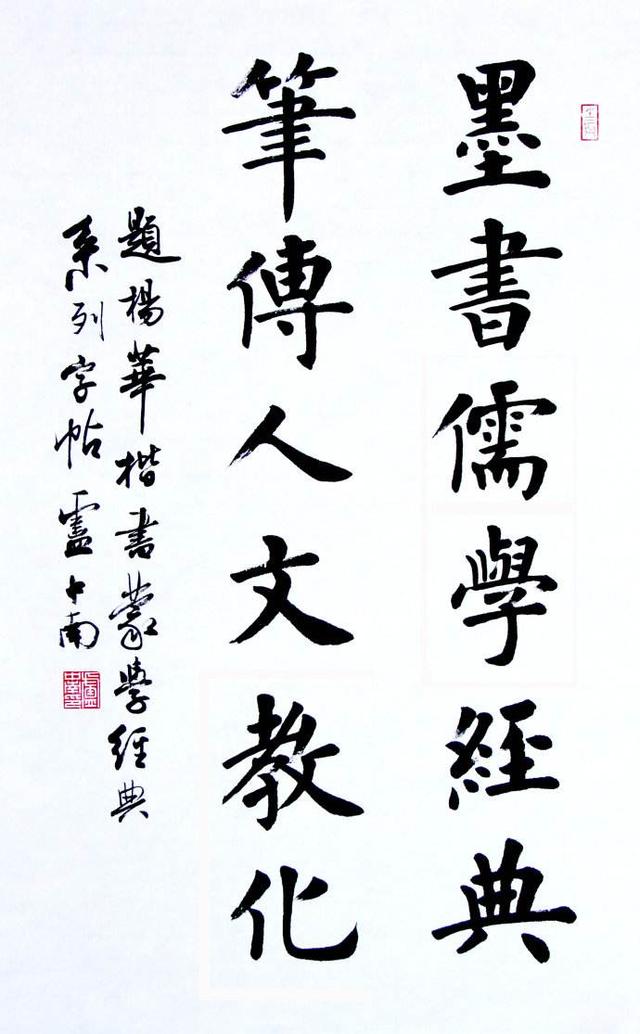 墨書儒學經典
筆傳人文教化
題楊華楷書蒙學經典
系列字帖盧中南